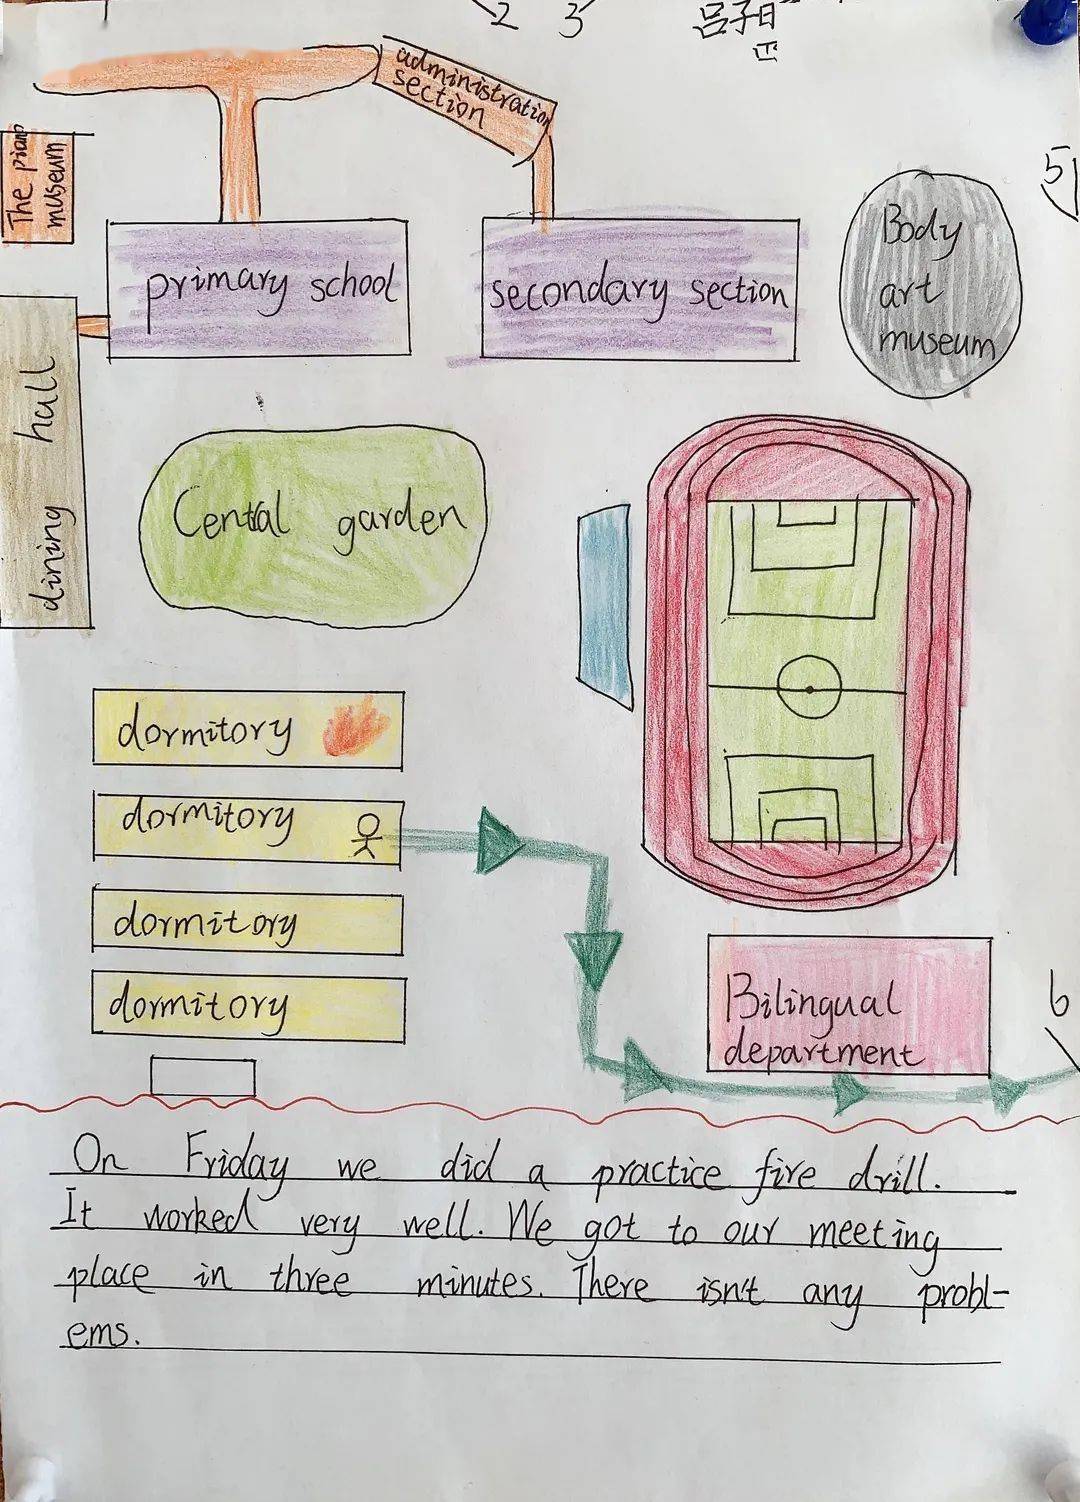 2 3
吕子昱
administration
section
The piano
museum
5
primary school
secondary section
Body
art
museum
dining hall
Central garden
dormitory
dormitory
dormitory
dormitory
Bilingual
department
6
On Friday we did a practice fire drill.
It worked very well. We got to our meeting
place in three minutes. There isn't any probl-
ems.